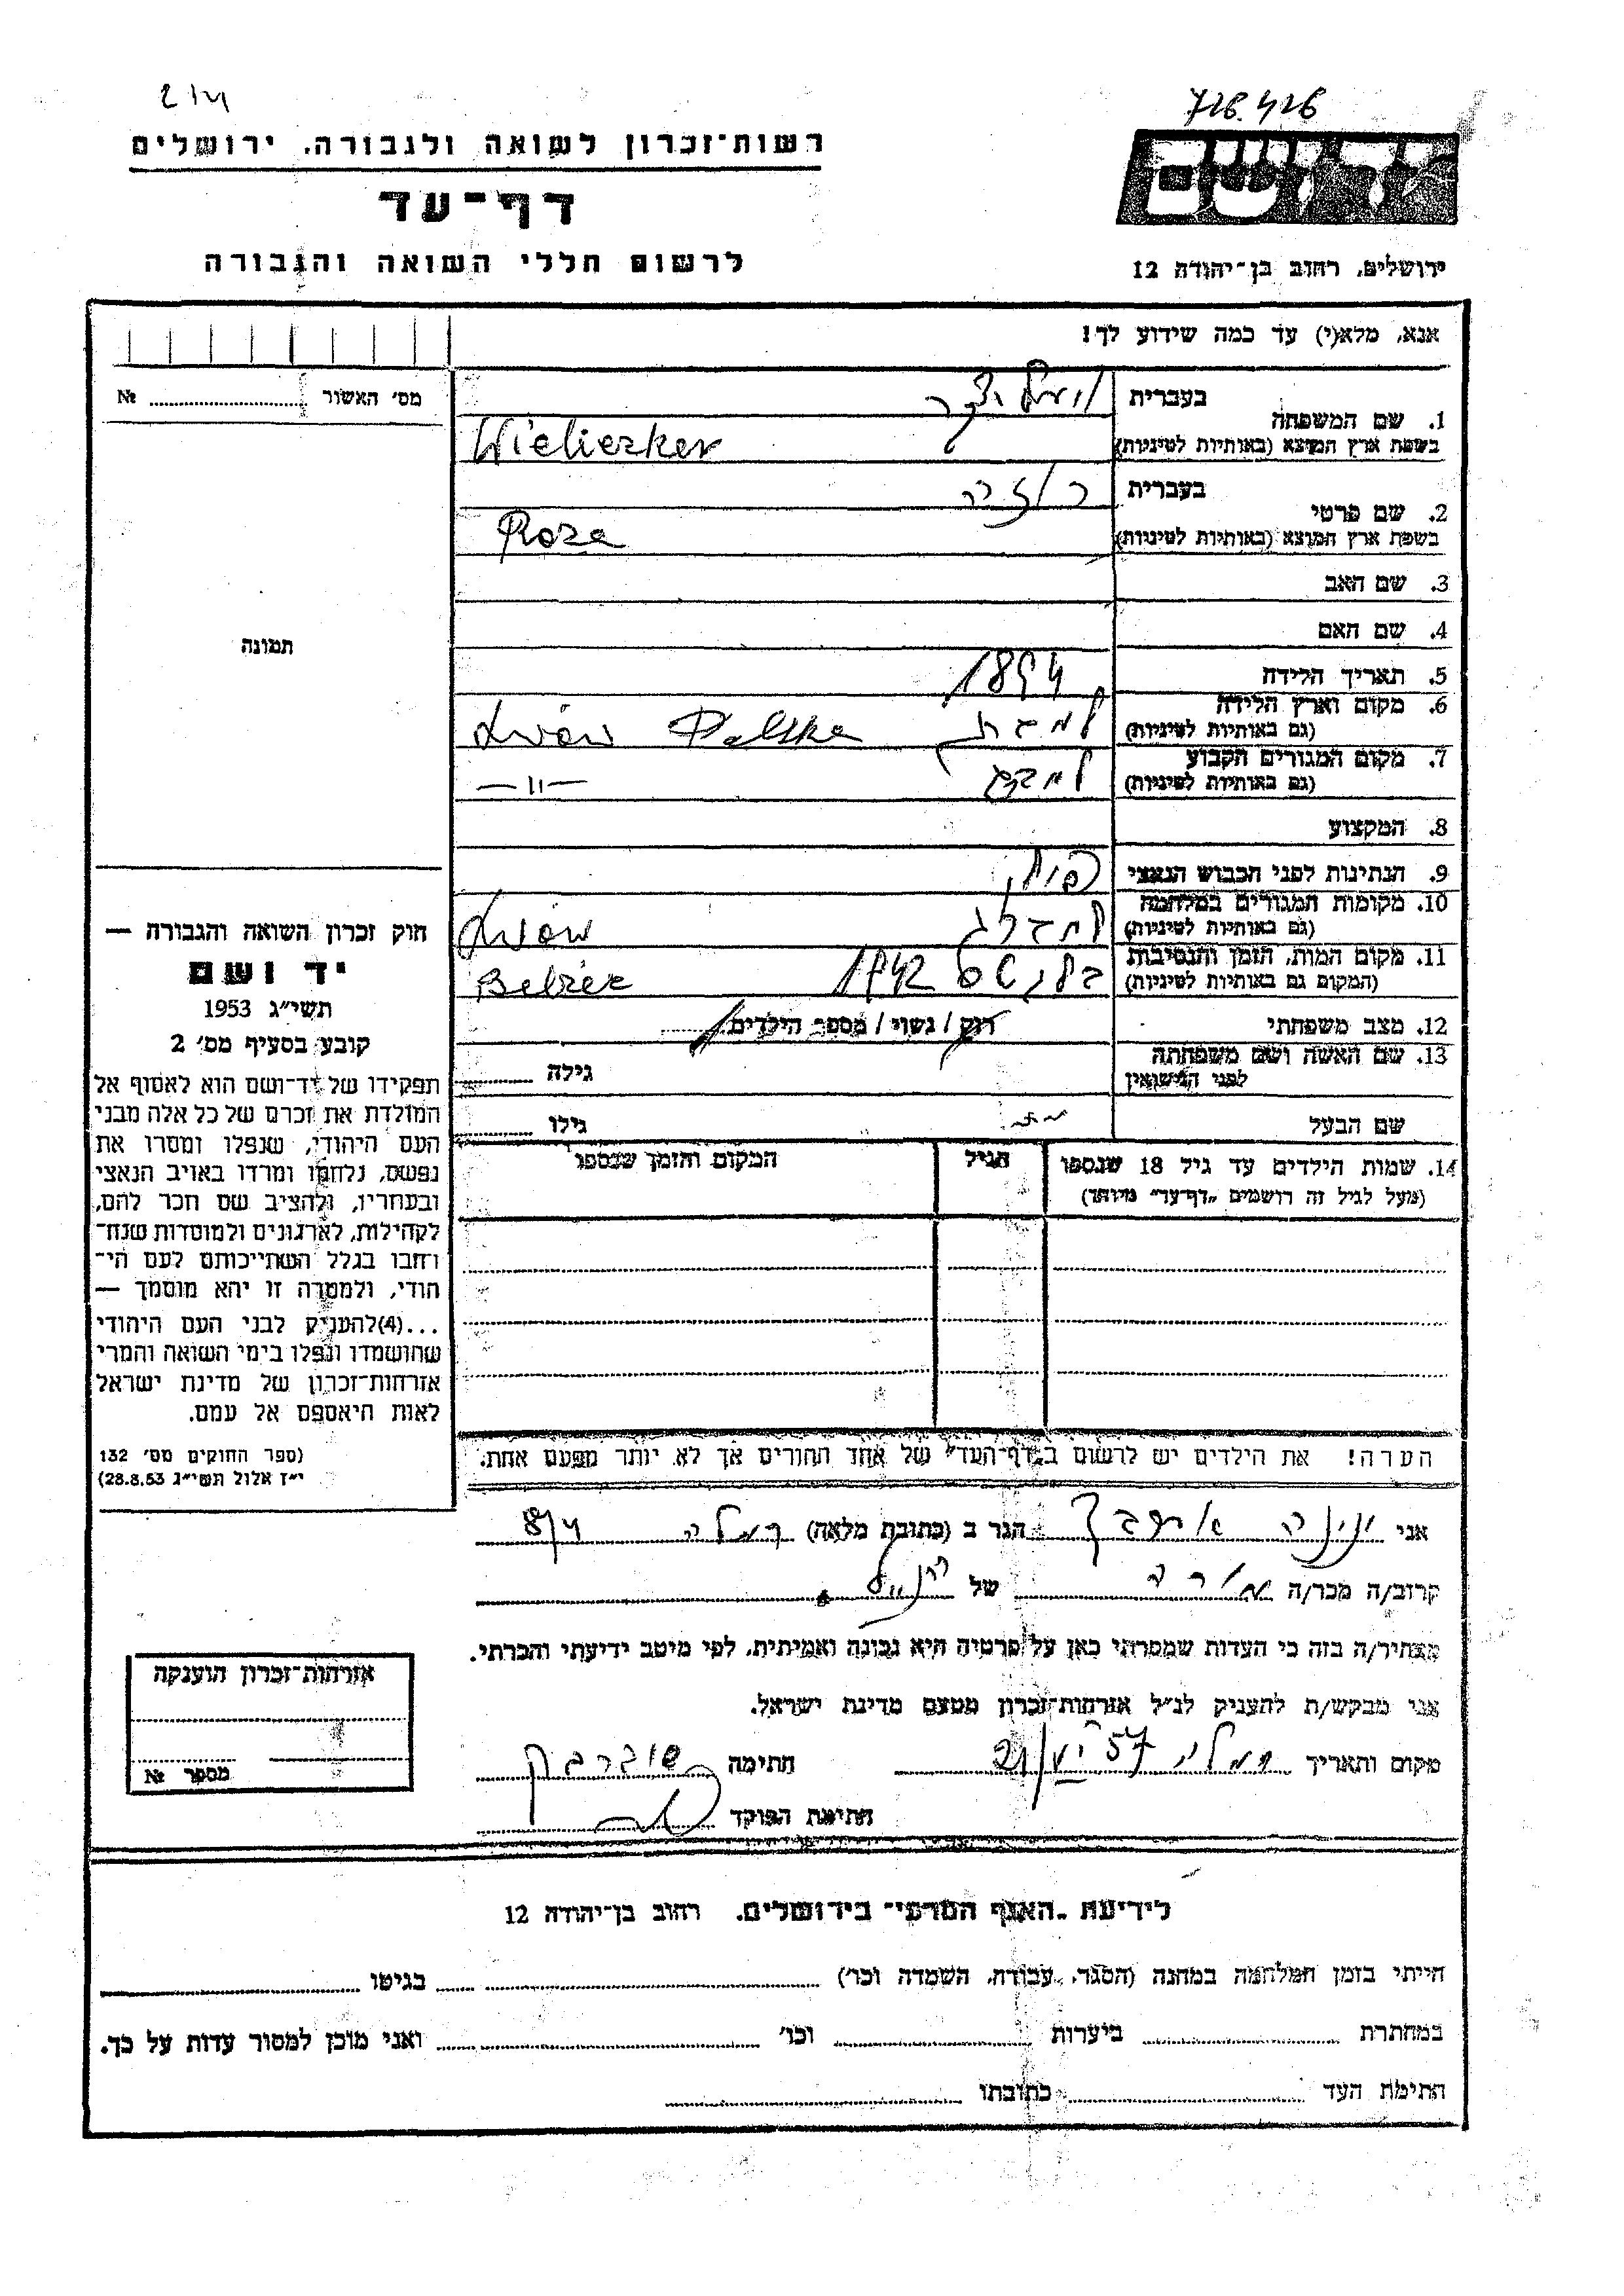 726.426
רשות־זכרון לשואה ולגבורה, ירושלים
דף־עד
לרשום חללי השואה והגבורה
יד ושם
ירושלים, רחוב בן־יהודה 12
אנא, מלא(י) עד כמה שידוע לך!
מס׳ האשור № 
1. שם המשפחה
בעברית
בשפת ארץ המוצא (באותיות לטיניות) Wielierker
2. שם פרטי
בעברית רוזה
בשפת ארץ המוצא (באותיות לטיניות) Roza
3. שם האב
4. שם האם
5. תאריך הלידה 1894
6. מקום וארץ הלידה
(גם באותיות לטיניות) Lwów Polska
7. מקום המגורים הקבוע
(גם באותיות לטיניות) — 11 —
8. המקצוע
9. הנתינות לפני הכבוש הנאצי פולין
10. מקומות המגורים במלחמה
(גם באותיות לטיניות) Lwów
11. מקום המות, הזמן והנסיבות
(המקום גם באותיות לטיניות) 1942 Belzec
12. מצב משפחתי רוק / נשוי / מספר הילדים
13. שם האשה ושם משפחתה
לפני הנישואין גילה
שם הבעל גילו
14. שמות הילדים עד גיל 18 שנספו
(מעל לגיל זה רושמים „דף־עד" מיוחד)
הגיל
המקום והזמן שנספו
תמונה
חוק זכרון השואה והגבורה —
יד ושם
תשי״ג 1953
קובע בסעיף מס׳ 2
תפקידו של יד־ושם הוא לאסוף אל
המולדת את זכרם של כל אלה מבני
העם היהודי, שנפלו ומסרו את
נפשם, נלחמו ומרדו באויב הנאצי
ובעוזריו, ולהציב שם וזכר להם,
לקהילות, לארגונים ולמוסדות שנח־
רבו בגלל השתייכותם לעם הי־
הודי, ולמטרה זו יהא מוסמך —
...(4)להעניק לבני העם היהודי
שהושמדו ונפלו בימי השואה והמרי
אזרחות־זכרון של מדינת ישראל
לאות היאספם אל עמם.
(ספר החוקים מס׳ 132
י״ז אלול תשי״ג 28.8.53)
הערה! את הילדים יש לרשום ב„דף־העד" של אחד ההורים אך לא יותר מפעם אחת.
אני הגר ב (כתובת מלאה) רמלה
קרוב/ה מכר/ה של
מצהיר/ה בזה כי העדות שמסרתי כאן על פרטיה היא נכונה ואמיתית, לפי מיטב ידיעתי והכרתי.
אני מבקש/ת להעניק לנ״ל אזרחות־זכרון מטעם מדינת ישראל.
מקום ותאריך חתימה
חתימת הפוקד
אזרחות־זכרון הוענקה
מספר №
לידיעת „האגף המדעי" בירושלים, רחוב בן־יהודה 12
הייתי בזמן המלחמה במחנה (הסגר, עבודה, השמדה וכו׳) בגיטו
במחתרת ביערות וכו׳ ואני מוכן למסור עדות על כך.
חתימת העד כתובתו